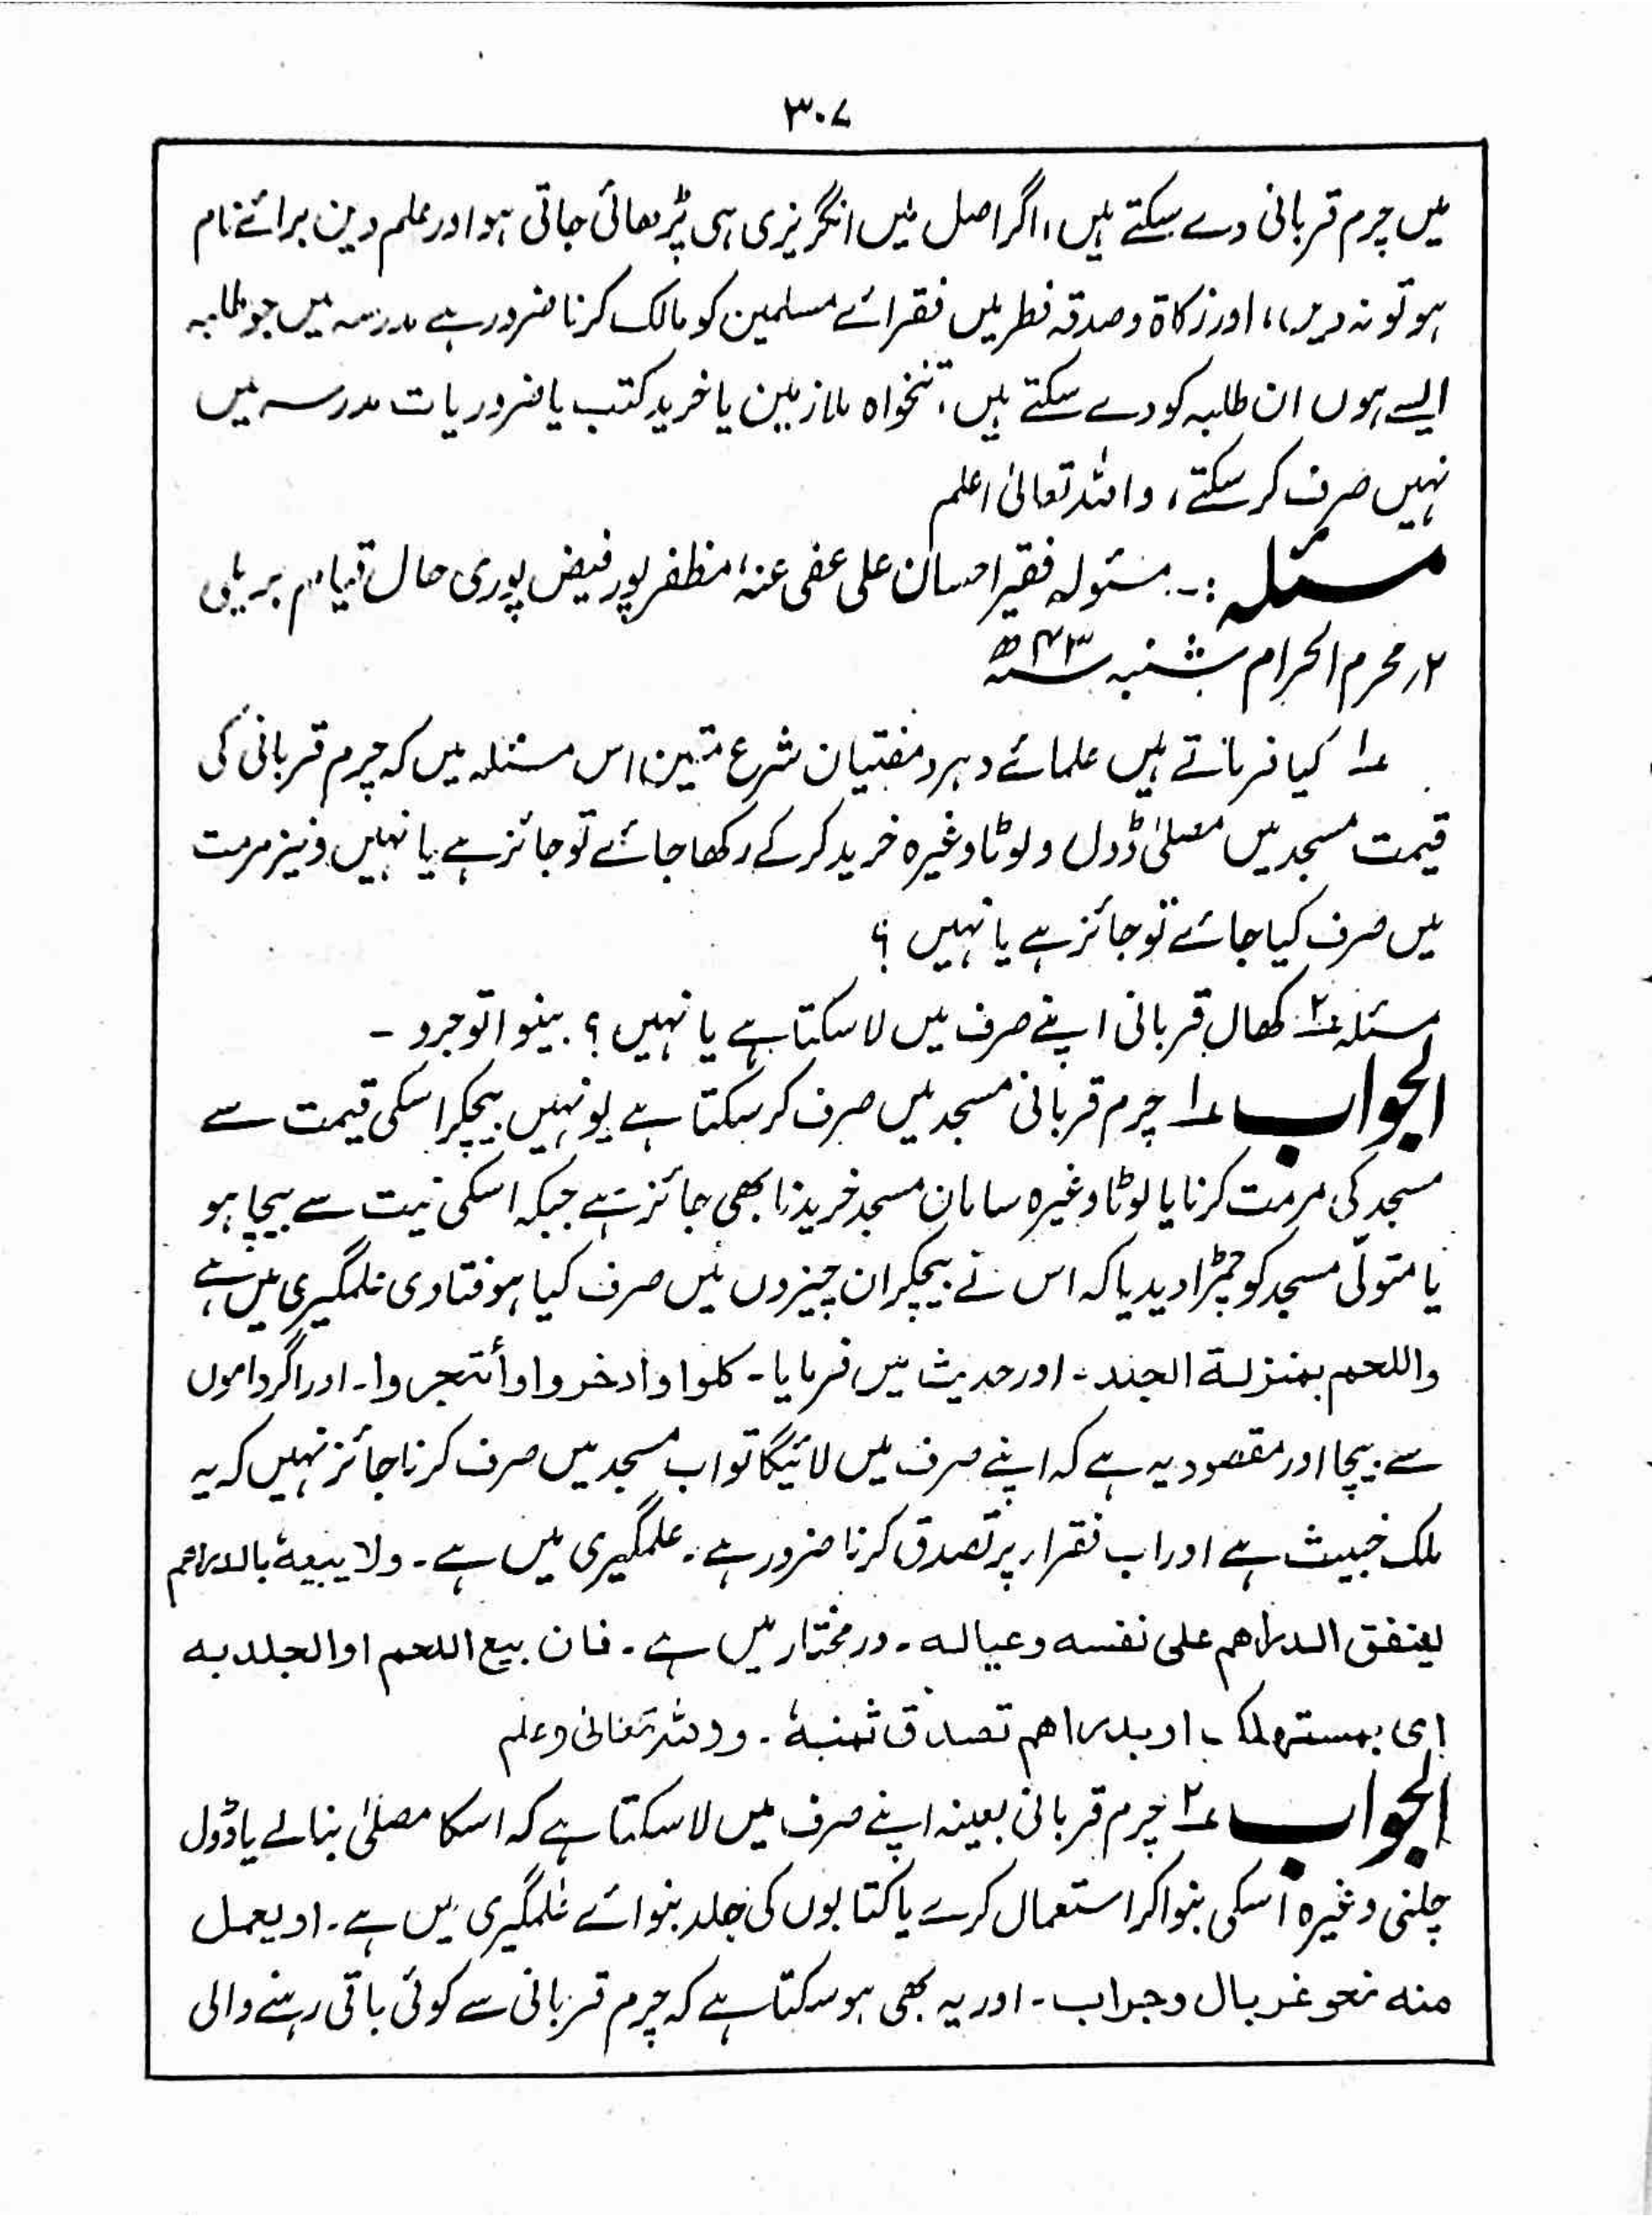 ۳۰۷
میں چرم قربانی دے سکتے ہیں، اگر اصل میں انگریزی ہی پڑھائی جاتی ہو اور علم دین برائے نام
ہو تو نہ دیں، اور زکاۃ و صدقہ فطر میں فقرائے مسلمین کو مالک کرنا ضرور ہے مدرسہ میں جو طلبہ
ایسے ہوں ان طلبہ کو دے سکتے ہیں، تنخواہ ملازمین یا خرید کتب یا ضروریات مدرسہ میں
نہیں صرف کر سکتے، واللہ تعالیٰ اعلم
مسئلہ :۔ مسئولہ فقیر احسان علی عفی عنہ، مظفر پور فیض پوری حال قیام بریلی
۲؍ محرم الحرام شنبہ ۴۳ھ
۱؎ کیا فرماتے ہیں علمائے دہر و مفتیان شرع متین اس مسئلہ میں کہ چرم قربانی کی
قیمت مسجد میں مصلیٰ ڈول و لوٹا وغیرہ خرید کر کے رکھا جائے تو جائز ہے یا نہیں و نیز مرمت
میں صرف کیا جائے تو جائز ہے یا نہیں ؟
مسئلہ ۲؎ کھال قربانی اپنے صرف میں لا سکتا ہے یا نہیں ؟ بینوا توجروا۔
الجواب ۱؎ چرم قربانی مسجد میں صرف کر سکتا ہے یونہیں بیچکر اسکی قیمت سے
مسجد کی مرمت کرنا یا لوٹا وغیرہ سامان مسجد خریدنا بھی جائز ہے جبکہ اسکی نیت سے بیچا ہو
یا متولّی مسجد کو چمڑا دیدیا کہ اس نے بیچکر ان چیزوں میں صرف کیا ہو فتاوی عٰلمگیری میں ہے
واللحم بمنزلة الجلد۔ اور حدیث میں فرمایا۔ کلوا وادخروا وأتجروا۔ اور اگر داموں
سے بیچا اور مقصود یہ ہے کہ اپنے صرف میں لائیگا تو اب مسجد میں صرف کرنا جائز نہیں کہ یہ
ملک خبیث ہے اور اب فقراء پر تصدق کرنا ضرور ہے۔ علمگیری میں ہے۔ ولا یبیعهٗ بالدراهم
لینفق الدراهم علی نفسه وعیاله۔ درمختار میں ہے۔ فان بیع اللحم او الجلد به
ای بمستهلک او بدراهم تصدق ثمنهٗ۔ واللہ تعالیٰ اعلم
الجواب ۲؎ چرم قربانی بعینہ اپنے صرف میں لا سکتا ہے کہ اسکا مصلیٰ بنالے یا ڈول
چلنی وغیرہ اسکی بنوا کر استعمال کرے یا کتابوں کی جلد بنوائے عٰلمگیری میں ہے۔ او یعمل
منه نحو غربال وجراب۔ اور یہ بھی ہو سکتا ہے کہ چرم قربانی سے کوئی باقی رہنے والی